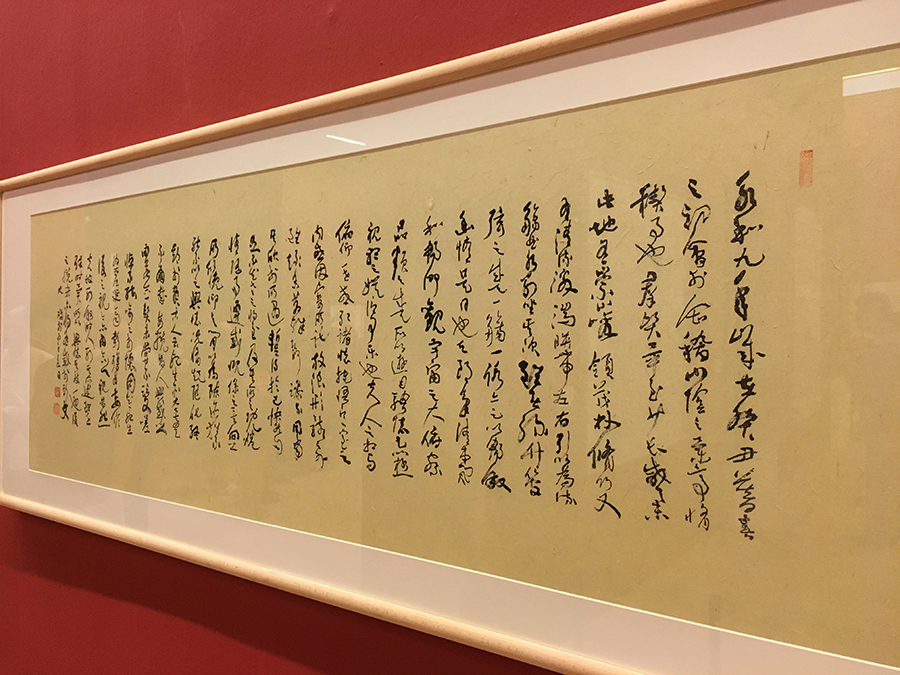 永和九年歲在癸丑暮春
之初會於會稽山陰之蘭亭脩
禊事也群賢畢至少長咸集
此地有崇山峻領茂林脩竹又
有清流激湍映帶左右引以為流
觴曲水列坐其次雖無絲竹管
弦之盛一觴一詠亦足以暢敘
幽情是日也天朗氣清惠風
和暢仰觀宇宙之大俯察
品類之盛所以遊目騁懷足以極
視聽之娛信可樂也夫人之相與
俯仰一世或取諸懷抱悟言一室之
內或因寄所託放浪形骸之外
雖趣舍萬殊靜躁不同當
其欣於所遇暫得於己快然自
足不知老之將至及其所之既倦
情隨事遷感慨係之矣向之
所欣俛仰之間以為陳迹猶不
能不以之興懷況脩短隨化終
期於盡古人云死生亦大矣豈
不痛哉每攬昔人興感之由
若合一契未嘗不臨文嗟
悼不能喻之於懷固知一死生
為虛誕齊彭殤為妄作
後之視今亦由今之視昔悲
夫故列敘時人錄其所述雖世
殊事異所以興懷其致一也後
之攬者亦將有感於斯文